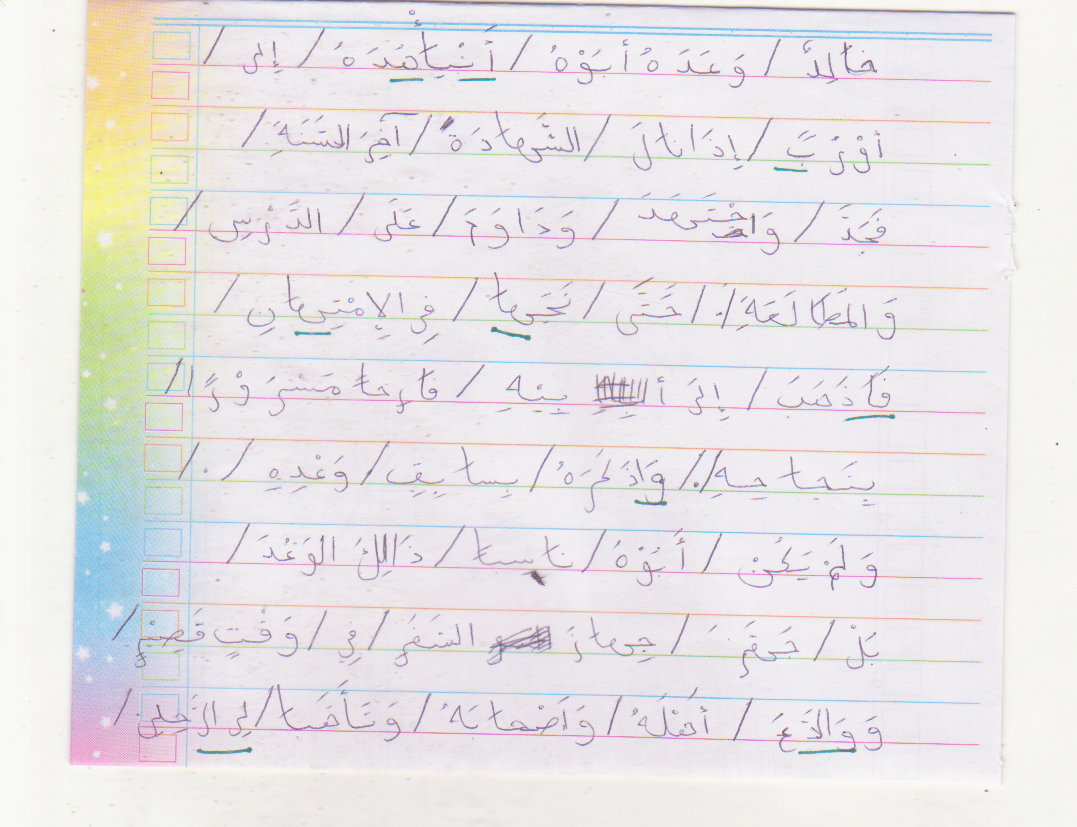 خَالِدٌ / وَعَدَهُ أَبَوْهُ / أَنْيأَهَدَهُ / إِلى /
أَوْرُبَّ / إِذَا نالَ / الشَّهادَةَ / آخِرَ السَّنَةِ /
فَجَدَّ / وَاجْتَهَدَ / وَدَاوَمَ / عَلَى / الدَّرْسِ /
وَالمَطَالَعَةِ /. / حَتَّى / نَجَحا / فِي الإِمْتِهانِ /
فَاَذَهَبَ / إِلَى أَبِيْهِ / فَارِحا مَسْرَوْرًا /
بِنَجاحِهِ /. / وَاذَكَرَهُ / بِسابِقِ / وَعْدِهِ / . /
وَلَمْ يَكُنْ / أَبَوْهُ / ناسيا / ذَالِكَ الوَعْدَ /
بَلْ / جَهَّزَ / جِهازَ السَفَرِ / فِي / وَقْتٍ قَصِيْرٍ /
وَوَالدَعَ / أَهْلَهُ / وَاَصْحابَهُ / وَتَأَهَّبا / لِلرَحِلِ /